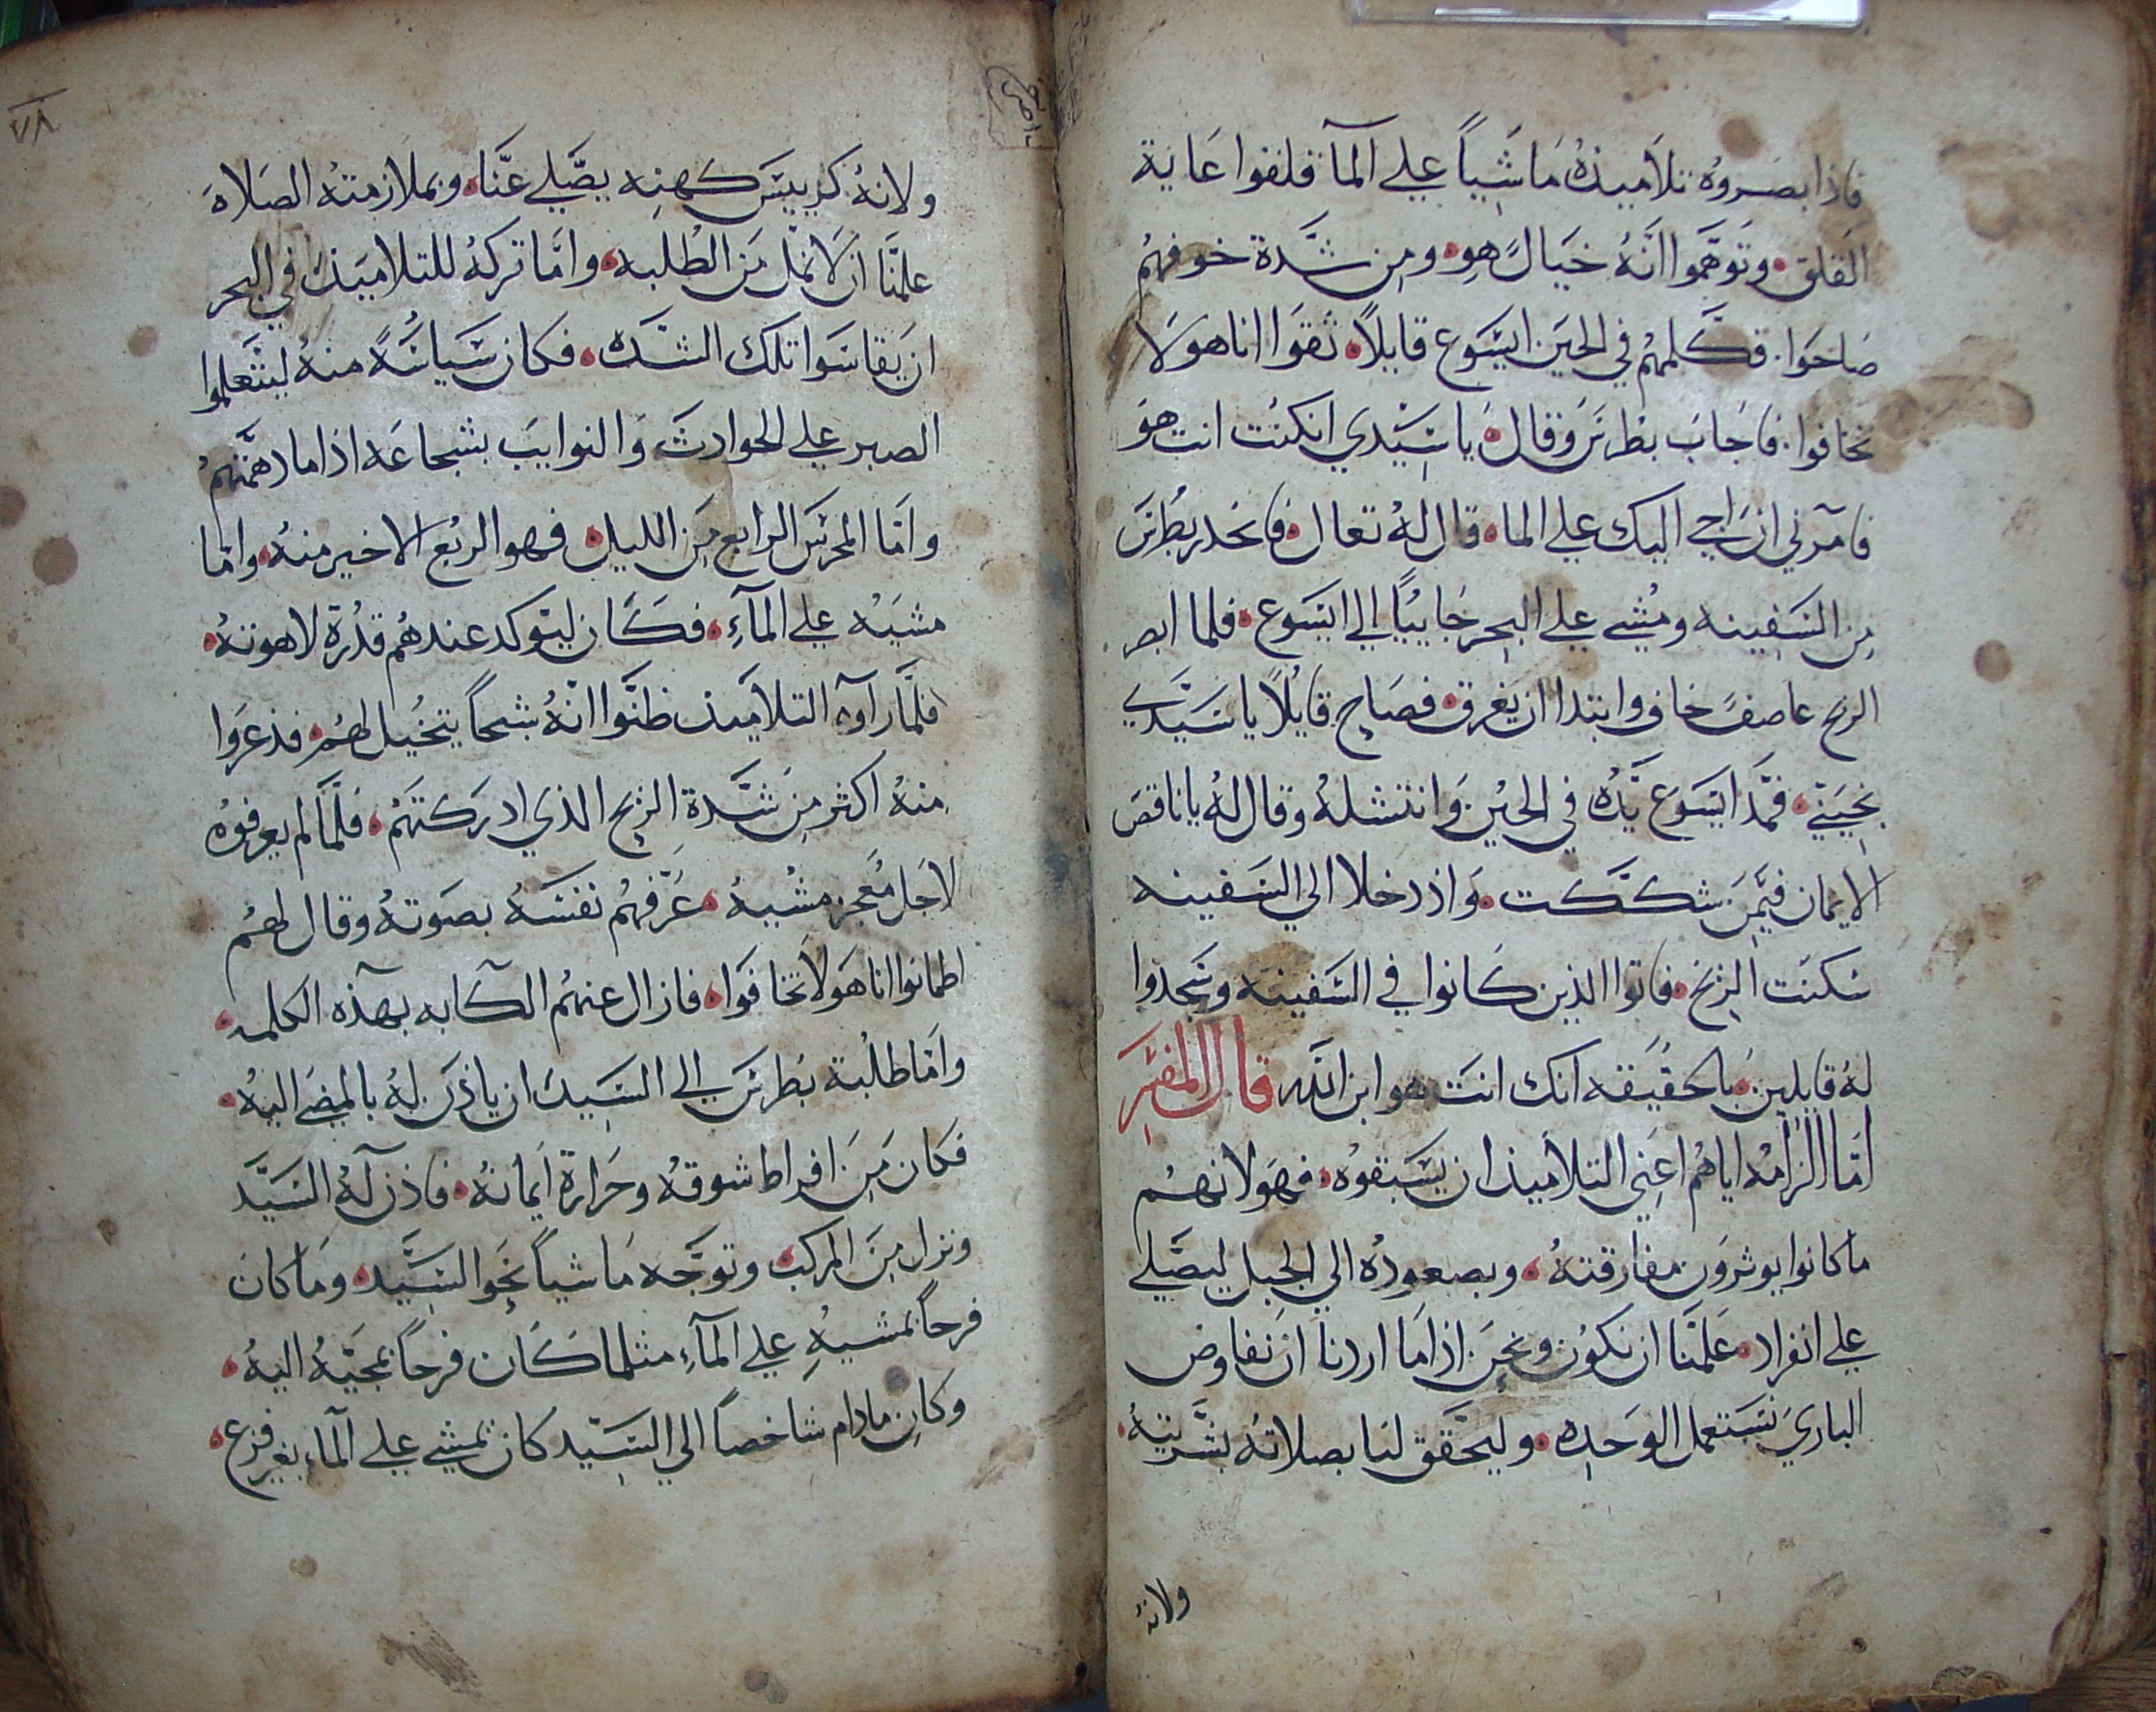 فاذا بصروه تلاميذه ماشياً علي المآ قلقوا غاية
القلق. وتوهموا انه خيالً هو. ومن شدة خوفهم
صاحوا. فكلمهم في الحين ايسوع قايلاً. ثقوا انا هو لا
تخافوا. فاجاب بطرس وقال. يا سيدي انكنت انت هو
فآمرني ان اجي اليك علي الما. قال له تعال. فانحدر بطرس
من السفينه ومشي علي البحر جاييًا الي ايسوع. فلما ابصر
الريح عاصفً خاف وابتدا ان يغرق. فصاح قايلاً يا سيدي
نجيني. فمد ايسوع يده في الحين وانتشله وقال له يا ناقص
الايمان فيمن شككت. واذ دخلا الي السفينه
سكنت الريح. فاتوا الذين كانوا في السفينه وسجدوا
له قايلين. بالحقيقه انك انت هو ابن الله قال المفسر
امّا الزامه اياهم اعني التلاميذ ان يسبقوه. فهو لانهم
ما كانوا يوثرون مفارقته. وبصعوده الي الجبل ليصلي
علي انفراد. علمنا ان نكون ونحن اذا ما اردنا ان نفاوض
الباري نستعمل الوحده. وليحقق لنا بصلاته بشريته.
ولانه
٧٨
ولانه كرييس كهنه يصلي عنّا. وبملازمته الصلاه
علمنا ان لا نمل من الطلبه. وامّا تركه للتلاميذ في البحر
ان يقاسوا تلك الشده. فكان سياسةً منه ليتعلموا
الصبر علي الحوادث والنوايب بشجاعه اذا ما دهمتهم
وامّا المحرس الرابع من الليل. فهو الربع الاخير منه. وامّا
مشيه علي المآءِ. فكان ليتوكد عندهم قدرة لاهوته.
فلمّا رآوه التلاميذ ظنّوا انه شبحاً يتخيل لهم. فذعروا
منه اكثر من شدة الريح الذي ادركتهم. فلمّا لم يعرفوه
لاجل معجز مشيه. عرّفهم نفسه بصوته وقال لهم
اطمانوا انا هو لا تخافوا. فازال عنهم الكآبه بهذه الكلمه.
وامّا طلبة بطرس الي السيد ان ياذن له بالمضي اليه.
فكان من افراط شوقه وحرارة ايمانه. فاذن له السيّد
ونزل من المركب وتوجّه ماشياً نحو السيّد. وما كان
فرحاً بمشيهِ علي المآءِ مثلما كان فرحاً بمجيّه اليه.
وكان مادام شاخصاً الي السيّد كان يمشي علي المآء بغير فزع.